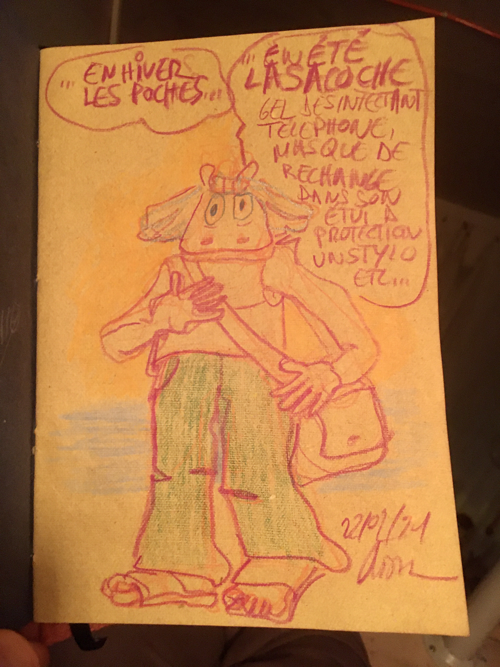 ... EN HIVER
LES POCHES...
... EN ÉTÉ
LA SACOCHE
GEL DESINTECTANT
TELEPHONE,
MASQUE DE
RECHANGE
DANS SON
ÉTUI D
PROTECTION
UN STYLO
ETC...